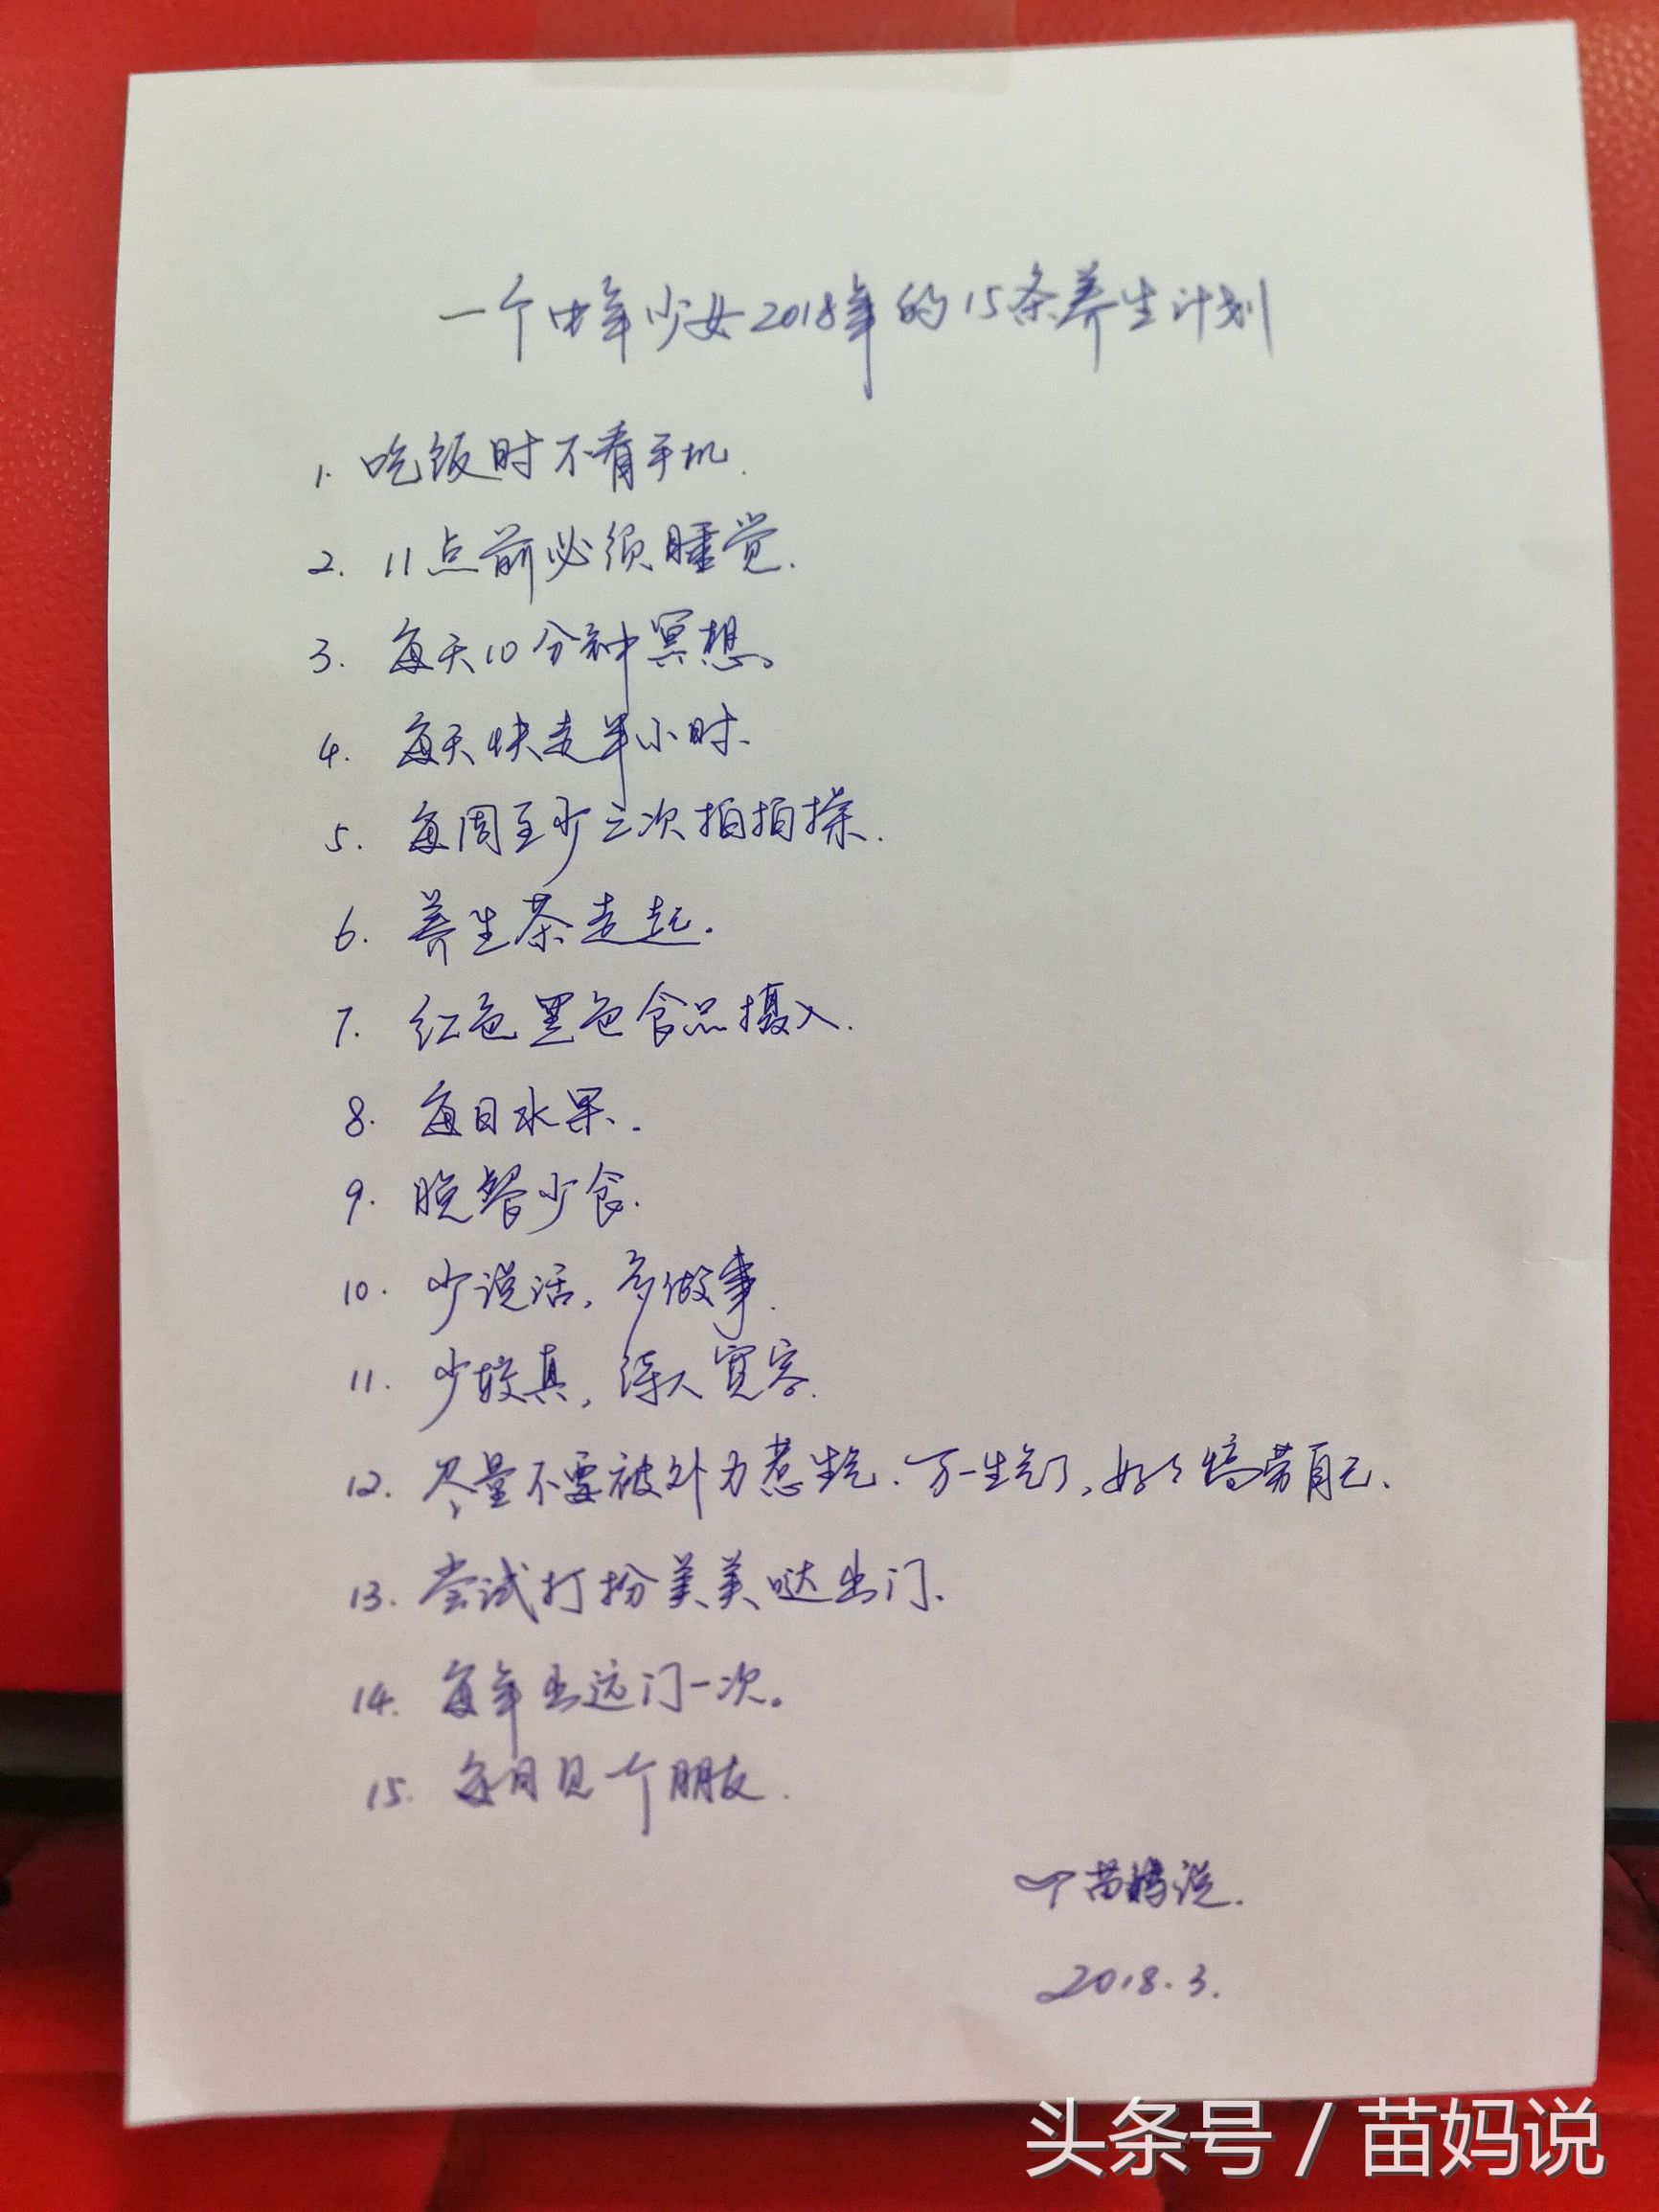 一个中年少女2018年的15条养生计划
1. 吃饭时不看手机.
2. 11点前必须睡觉.
3. 每天10分钟冥想。
4. 每天快走半小时.
5. 每周至少三次拍拍操.
6. 养生茶走起.
7. 红色黑色食品摄入.
8. 每日水果.
9. 晚餐少食.
10. 少说话, 多做事.
11. 少较真, 待人宽容.
12. 尽量不要被外力惹生气. 万一生气了, 好好犒劳自己.
13. 尝试打扮美美哒出门.
14. 每年出远门一次。
15. 每月见一个朋友.
苗妈说.
2018.3.
头条号 / 苗妈说